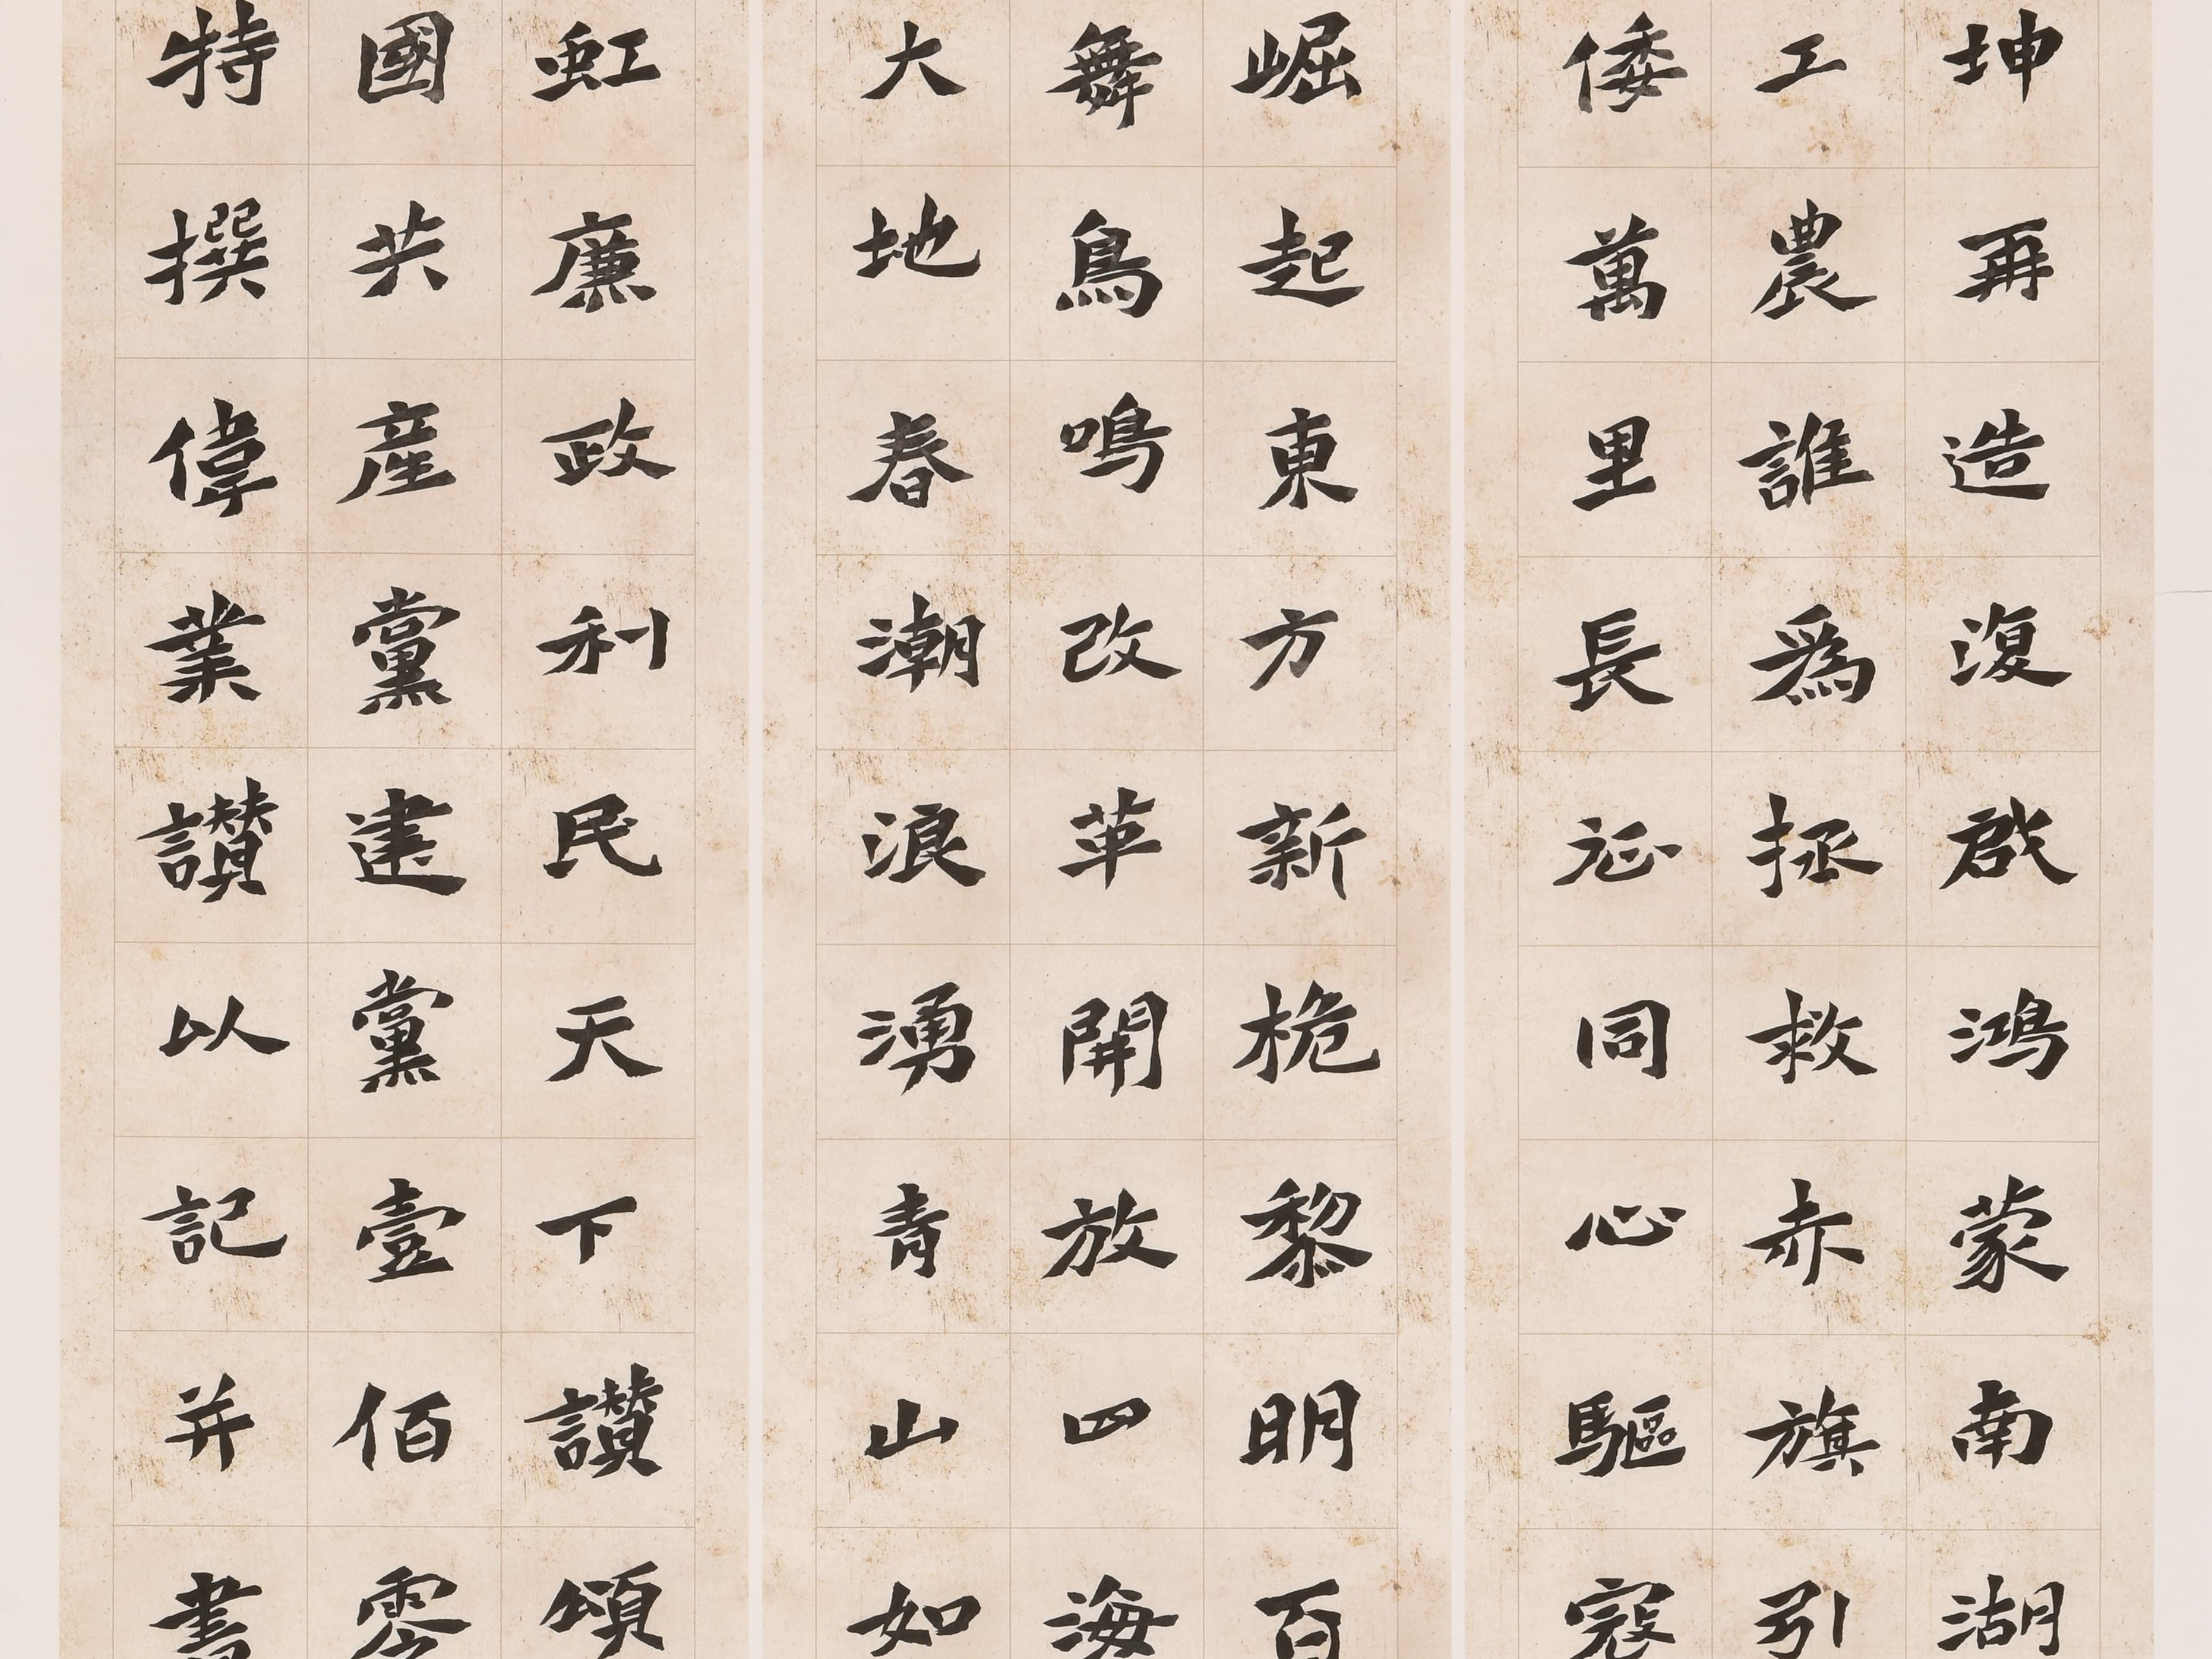 坤再造復啟鴻蒙南湖
工農誰爲拯救赤旗引
倭萬里長征同心驅寇
崛起東方新桅黎明百
舞鳥鳴改革開放四海
大地春潮浪湧青山如
虹廉政利民天下讚頌
國共產黨建黨壹佰零
特撰偉業讚以記并書